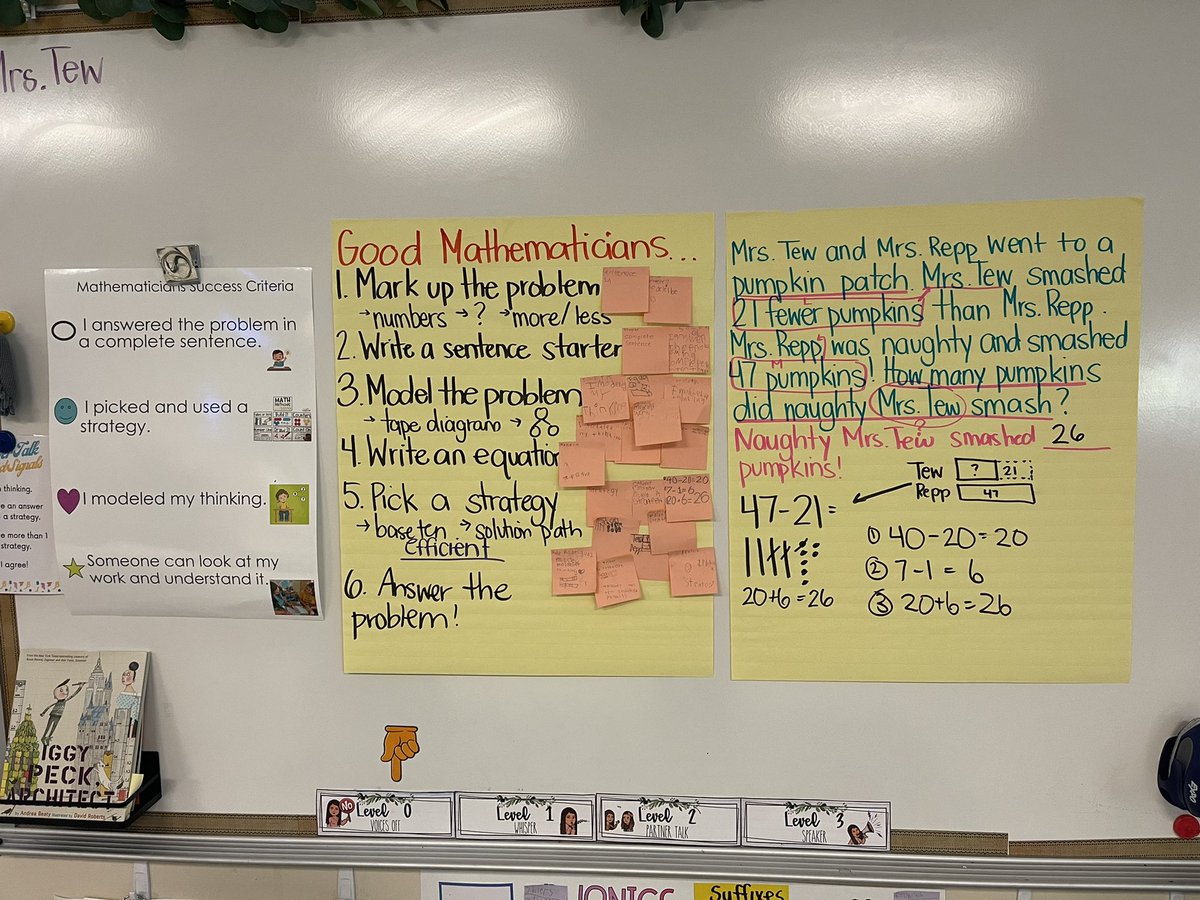 Mrs. Tew
Mathematicians Success Criteria
I answered the problem in
a complete sentence.
I picked and used a
strategy.
I modeled my thinking.
Someone can look at my
work and understand it.
Talk
Signals
thinking.
an answer
a strategy.
more than 1
strategy.
I agree!
Good Mathematicians...
1. Mark up the problem
→numbers →? →more/less
2. Write a sentence starter
3. Model the problem
→tape diagram →
4. Write an equation
5. Pick a strategy
→base ten →solution path
efficient
6. Answer the
problem!
complete
sentence
strategy
40-20=20
7-1=6
20+6=26
Mrs. Tew and Mrs. Repp went to a
pumpkin patch. Mrs. Tew smashed
21 fewer pumpkins than Mrs. Repp.
Mrs. Repp was naughty and smashed
47 pumpkins! How many pumpkins
did naughty Mrs. Tew smash?
Naughty Mrs. Tew smashed 26
pumpkins!
Tew ? 21
Repp 47
47-21=
20+6=26
① 40-20=20
② 7-1=6
③ 20+6=26
IGGY
PECK,
ARCHITECT
by Andrea Beaty illustrated by David Roberts
NO
Level 0
VOICES OFF
Level 1
WHISPER
Level 2
PARTNER TALK
Level 3
SPEAKER
Suffixes